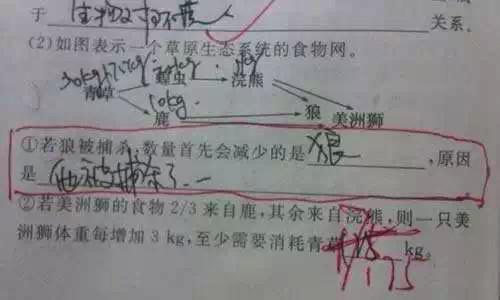 于 生物对环境 关系.
(2)如图表示一个草原生态系统的食物网。
青草 蝗虫 浣熊
10kg.
鹿 狼 美洲狮
①若狼被捕杀,数量首先会减少的是 狼 ,原因
是 他被捕杀了
②若美洲狮的食物 2/3 来自鹿,其余来自浣熊,则一只美
洲狮体重每增加 3 kg,至少需要消耗青草 kg。
175